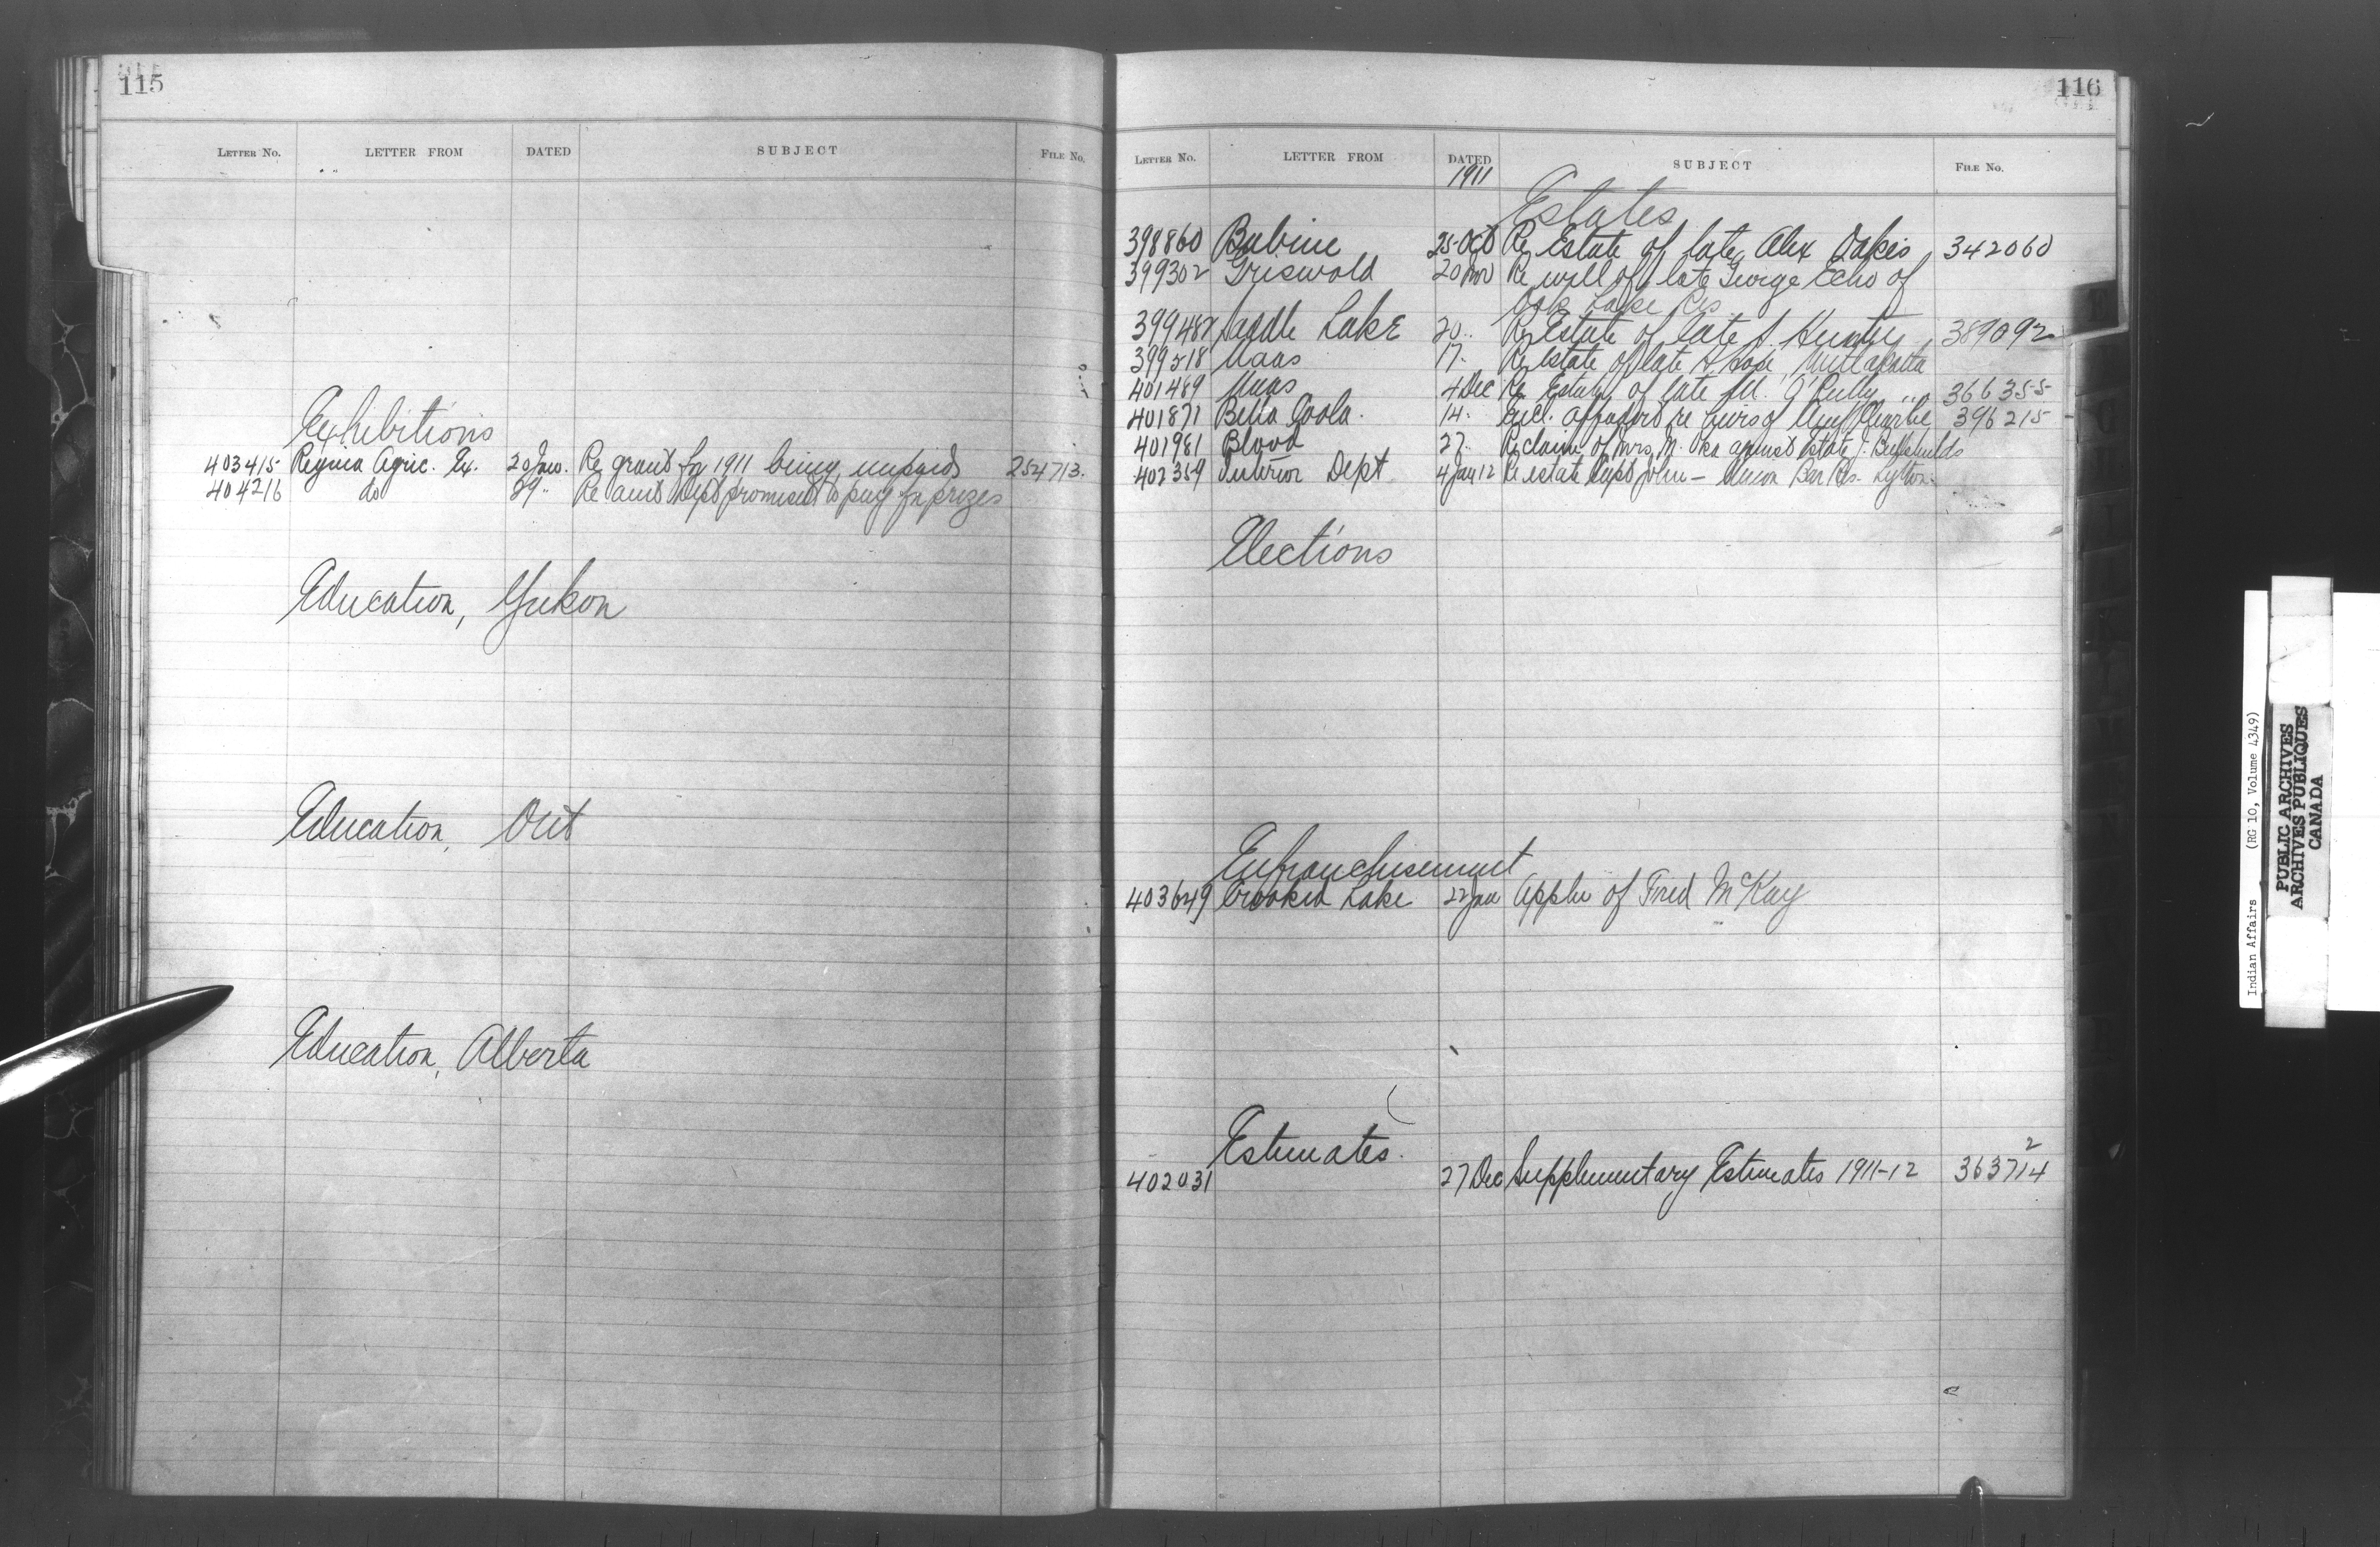 115
LETTER No. LETTER FROM DATED SUBJECT FILE No.
Exhibitions
403415 Regina Agric. Ex. 20 Jan. Re grant for 1911 being unpaid 254713.
404216 do 29 " Re amt Dept promised to pay for prizes
Education, Yukon
Education, Ont
Education, Alberta
116
LETTER No. LETTER FROM DATED SUBJECT FILE No.
1911
Estates
398860 Babine 25 Oct Re Estate of late Alex Oakes 342060
399302 Griswold 20 Nov Re will of late George Echo of
Oak Lake Res
399487 Saddle Lake 20 " Re Estate of late Hunter 389092
399518 Naas 17 " Re Estate of late Metlakatla
401489 Naas 4 Dec Re Estate of late M. O'Reilly " 366355
401871 Bella Coola. 14 " Encl. re heirs of Charlie 396215
401981 Blood 27 " Re claim of Mrs. M. Oka against Estate J.
402359 Interior Dept 4 Jan 12 Re estate Capt John - Union Bar Res. Lytton.
Elections
Enfranchisement
403649 Crooked Lake 22 Jan Appln of Fred McKay
Estimates.
402031 27 Dec Supplementary Estimates 1911-12 363714 2
Indian Affairs (RG 10, Volume 4349)
PUBLIC ARCHIVES
ARCHIVES PUBLIQUES
CANADA